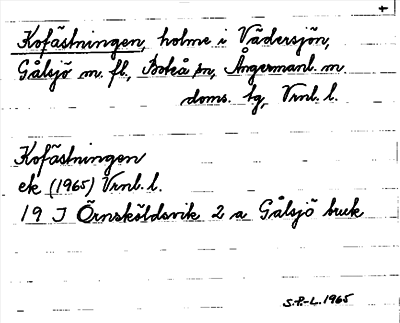 Kofästningen, holme i Vädersjön,
Gålsjö m. fl., Boteå sn, Ångermanl. m.
doms. tg, Vrnl. l.
Kofästningen
ek (1965) Vrnl. l.
19 J Örnsköldsvik 2 a Gålsjö bruk
S.P.-L. 1965